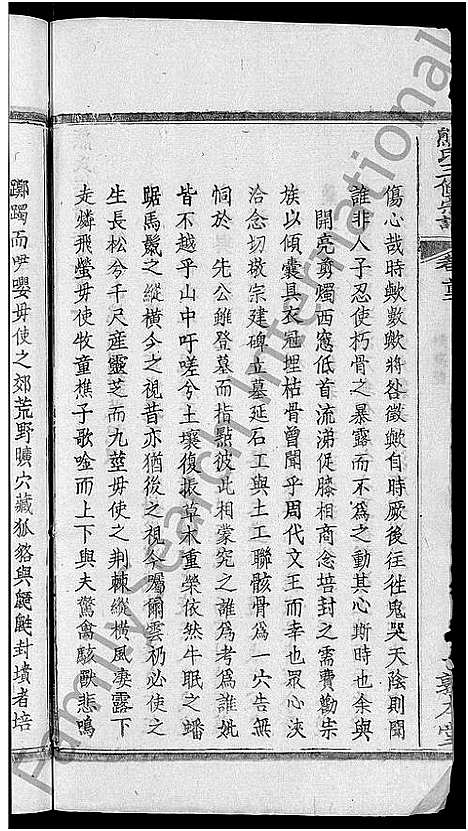 傷心哉時歟數歟將咎徵歟自時厥後往往鬼哭天陰則聞
誰非人子忍使朽骨之暴露而不爲之動其心斯時也余與
開亮剪燭西窓低首流涕促膝相商念培封之需費勸宗
族以傾囊具衣冠埋枯骨曾聞乎周代文王而幸也眾心浹
洽念切敬宗建碑立墓延石工與土工聯骸骨爲一穴告無
恫於 先公雖登墓而指點彼此相蒙究之誰爲考爲誰妣
皆不越乎山中吁嗟兮土壤復振草木重榮依然牛眠之蟠
踞馬鬛之縱橫今之視昔亦猶後之視今囑爾雲礽必使之
生長松兮千尺産靈芝而九莖毋使之荆棘縱橫風凄露下
走燐飛螢毋使牧童樵子歌唫而上下與夫驚禽駭獸悲鳴
躑躅而咿嚶毋使之郊荒野曠穴藏狐貉與鼯鼪封墳者培
熊氏三修宗譜
卷首
敦本堂
FamilySearch International